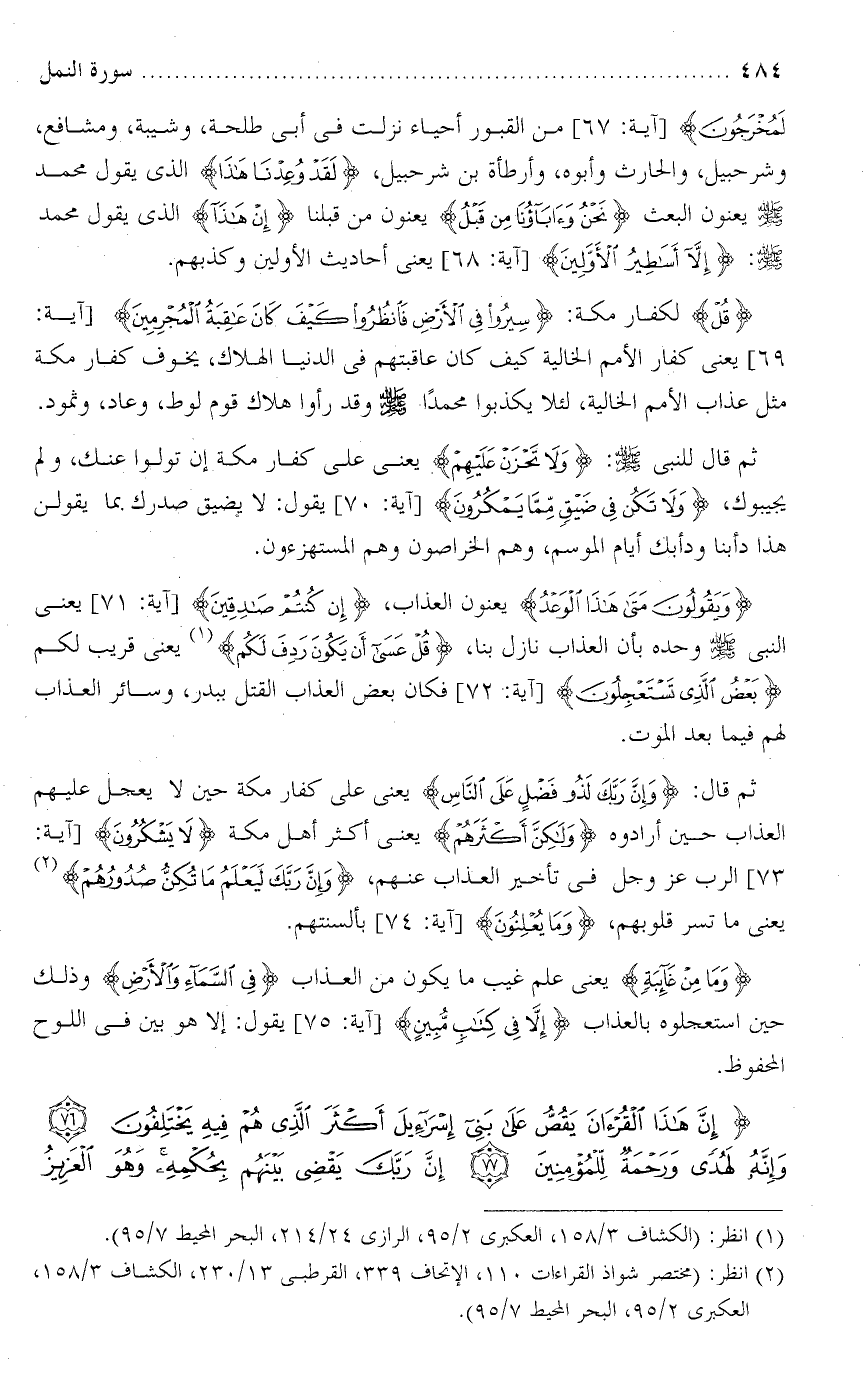 ٤٨٤ ........................................................................ سورة النمل
لَمُخْرَجُونَ﴾ [آية: ٦٧] من القبور أحياء نزلت فى أبى طلحة، وشيبة، ومشافع،
وشرحبيل، والحارث وأبوه، وأرطأة بن شرحبيل، ﴿لَقَدْ وُعِدْنَا هَٰذَا﴾ الذى يقول محمد
ﷺ يعنون البعث ﴿نَحْنُ وَءَابَآؤُنَا مِن قَبْلُ﴾ يعنون من قبلنا ﴿إِنْ هَٰذَآ﴾ الذى يقول محمد
ﷺ: ﴿إِلَّآ أَسَٰطِيرُ ٱلْأَوَّلِينَ﴾ [آية: ٦٨] يعنى أحاديث الأولين وكذبهم.
﴿قُلْ﴾ لكفار مكة: ﴿سِيرُوا۟ فِى ٱلْأَرْضِ فَٱنظُرُوا۟ كَيْفَ كَانَ عَٰقِبَةُ ٱلْمُجْرِمِينَ﴾ [آية:
٦٩] يعنى كفار الأمم الخالية كيف كان عاقبتهم فى الدنيا الهلاك، يخوف كفار مكة
مثل عذاب الأمم الخالية، لئلا يكذبوا محمدًا ﷺ وقد رأوا هلاك قوم لوط، وعاد، وثمود.
ثم قال للنبى ﷺ: ﴿وَلَا تَحْزَنْ عَلَيْهِمْ﴾ يعنى على كفار مكة إن تولوا عنك، ولم
يجيبوك، ﴿وَلَا تَكُن فِى ضَيْقٍ مِّمَّا يَمْكُرُونَ﴾ [آية: ٧٠] يقول: لا يضيق صدرك بما يقولن
هذا دأبنا ودأبك أيام الموسم، وهم الخراصون وهم المستهزءون.
﴿وَيَقُولُونَ مَتَىٰ هَٰذَا ٱلْوَعْدُ﴾ يعنون العذاب، ﴿إِن كُنتُمْ صَٰدِقِينَ﴾ [آية: ٧١] يعنى
النبى ﷺ وحده بأن العذاب نازل بنا، ﴿قُلْ عَسَىٰٓ أَن يَكُونَ رَدِفَ لَكُم﴾ (١) يعنى قريب لكم
﴿بَعْضُ ٱلَّذِى تَسْتَعْجِلُونَ﴾ [آية: ٧٢] فكان بعض العذاب القتل ببدر، وسائر العذاب
لهم فيما بعد الموت.
ثم قال: ﴿وَإِنَّ رَبَّكَ لَذُو فَضْلٍ عَلَى ٱلنَّاسِ﴾ يعنى على كفار مكة حين لا يعجل عليهم
العذاب حين أرادوه ﴿وَلَٰكِنَّ أَكْثَرَهُمْ﴾ يعنى أكثر أهل مكة ﴿لَا يَشْكُرُونَ﴾ [آية:
٧٣] الرب عز وجل فى تأخير العذاب عنهم، ﴿وَإِنَّ رَبَّكَ لَيَعْلَمُ مَا تُكِنُّ صُدُورُهُمْ﴾ (٢)
يعنى ما تسر قلوبهم، ﴿وَمَا يُعْلِنُونَ﴾ [آية: ٧٤] بألسنتهم.
﴿وَمَا مِنْ غَآئِبَةٍ﴾ يعنى علم غيب ما يكون من العذاب ﴿فِى ٱلسَّمَآءِ وَٱلْأَرْضِ﴾ وذلك
حين استعجلوه بالعذاب ﴿إِلَّا فِى كِتَٰبٍ مُّبِينٍ﴾ [آية: ٧٥] يقول: إلا هو بين فى اللوح
المحفوظ.
﴿إِنَّ هَٰذَا ٱلْقُرْءَانَ يَقُصُّ عَلَىٰ بَنِىٓ إِسْرَٰٓءِيلَ أَكْثَرَ ٱلَّذِى هُمْ فِيهِ يَخْتَلِفُونَ ٧٦
وَإِنَّهُۥ لَهُدًى وَرَحْمَةٌ لِّلْمُؤْمِنِينَ ٧٧ إِنَّ رَبَّكَ يَقْضِى بَيْنَهُم بِحُكْمِهِۦ ۚ وَهُوَ ٱلْعَزِيزُ
(١) انظر: (الكشاف ١٥٨/٣، العكبرى ٩٥/٢، الرازى ٢١٤/٢٤، البحر المحيط ٩٥/٧).
(٢) انظر: (مختصر شواذ القراءات ١١٠، الإتحاف ٣٣٩، القرطبى ٢٣٠/١٣، الكشاف ١٥٨/٣،
العكبرى ٩٥/٢، البحر المحيط ٩٥/٧).